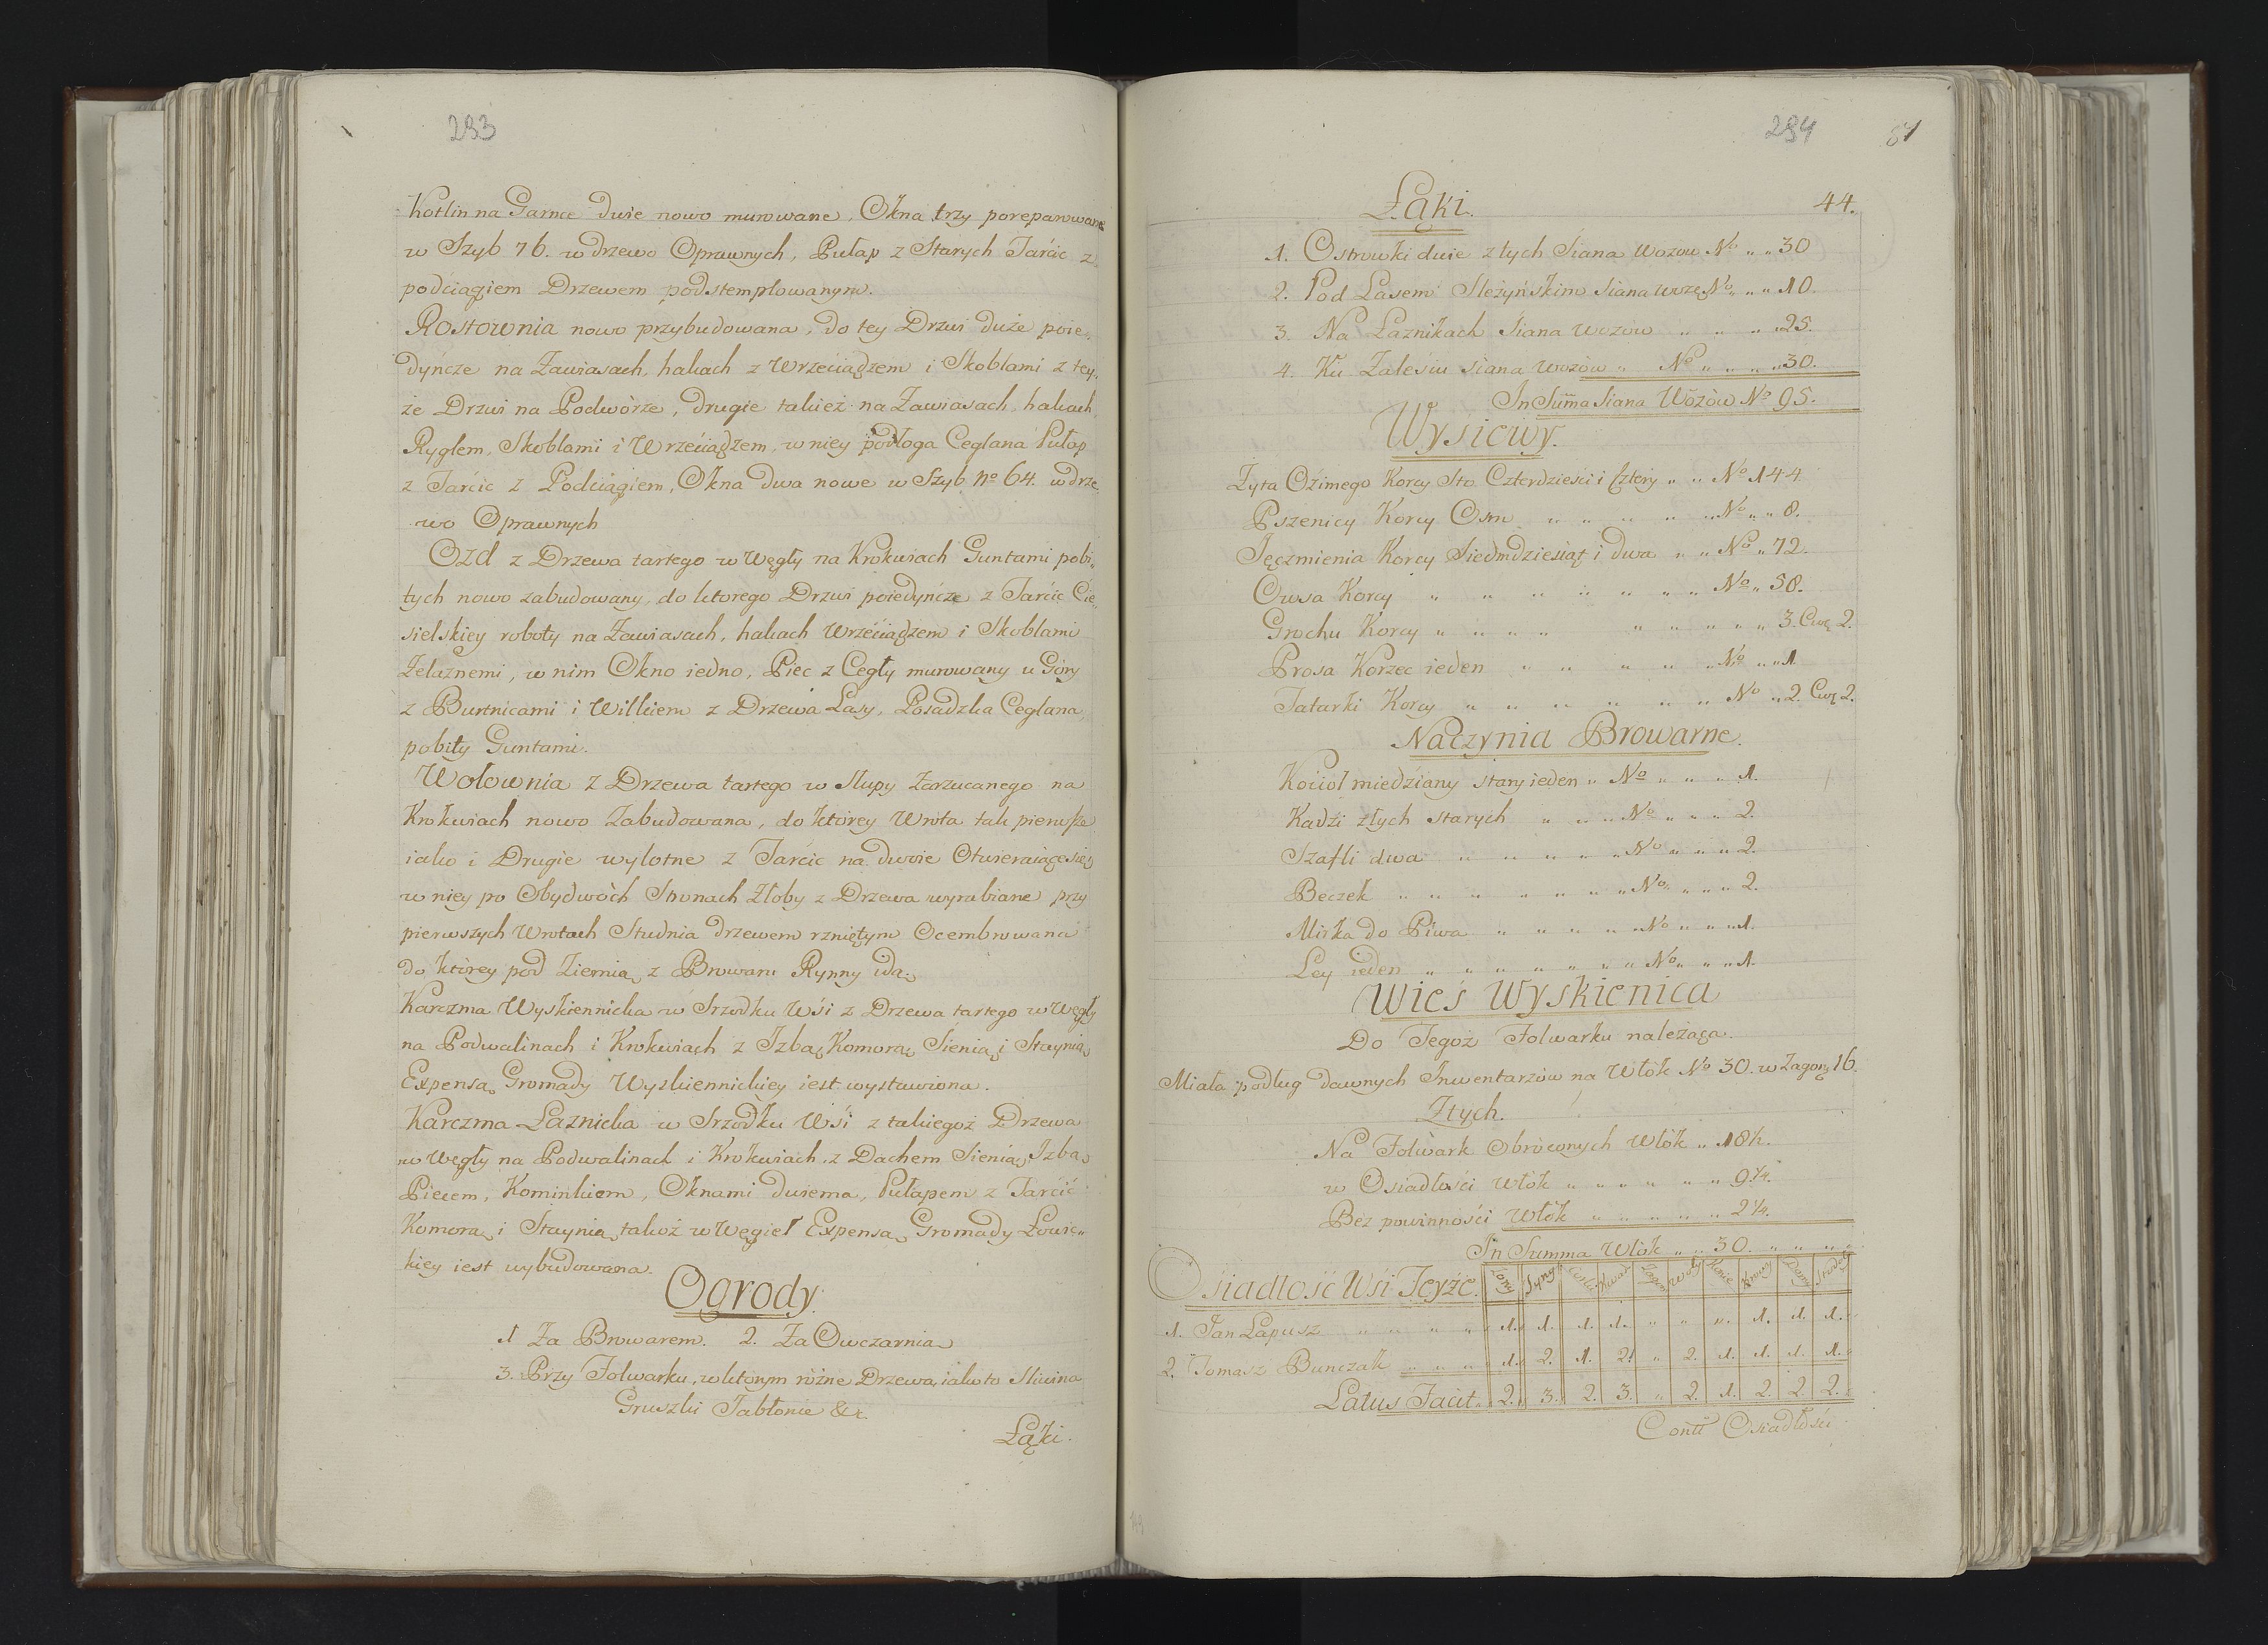 293
Kotlin na Garnce dwie nowo murowane, Okna trzy poreparowane
w Szyb 76. w drzewo Oprawnych, Pułap z Starych Tarcic z
podciągiem Drzewem podstemplowanym.
Rostownia nowo przybudowana, do tey Drzwi duże poie„
dyńcze na Zawiasach, hakach z Wrzeciądzem i Skoblami z tey„
że Drzwi na Podwòrze, drugie takież na Zawiasach, hakach,
Ryglem, Skoblami i Wrzeciądzem, w niey podłoga Ceglana Pułap
z Tarcic z Podciągiem, Okna dwa nowe w Szyb No 64. w drze„
wo Oprawnych
Ozd z Drzewa tartego w Węgły na Krokwiach Guntami pobi„
tych nowo zabudowany, do ktorego Drzwi poiedyńcze z Tarcic Cie„
sielskiey roboty na Zawiasach, hakach Wrzeciądzem i Skoblami
Żelaznemi, w nim Okno iedno, Piec z Cegły murowany u Gòry
z Burtnicami i Wilkiem z Drzewa Lasy, Posadzka Ceglana,
pobity Guntami.
Wołownia z Drzewa tartego w Słupy Zarzucanego na
Krokwiach nowo Zabudowana, do ktòrey Wrota tak pierwsze
iako i Drugie wylotne z Tarcic na dwoie Otwieraiące się,
w niey po Obydwòch Stronach Żłoby z Drzewa wyrabiane przy
pierwszych Wrotach Studnia drzewem rzniętym Ocembrowana
do ktòrey pod Ziemią z Browaru Rynny idą.
Karczma Wyskiennicka w Srzodku Wśi z Drzewa tartego w Węgły
na Podwalinach i Krokwiach z Izbą, Komorą, Sienią, i Staynią,
Expensą Gromady Wyskiennickiey iest wystawiona.
Karczma Laznicka w Srzodku Wśi z takiegoż Drzewa
w Węgły na Podwalinach i Krokwiach, z Dachem Sienią, Izbą,
Piecem, Kominkiem, Oknami dwiema, Pułapem z Tarcic
Komorą, i Staynią, takoż w Węgieł Expensą Gromady Łowic„
kiey iest wybudowana.
Ogrody.
1 Za Browarem. 2. Za Owczarnią
3. Przy Folwarku, w ktorym rożne Drzewa, iako to Sliwina
Gruszki Jabłonie &c.
Łąki.
294
81
44.
Łąki.
1. Ostrowki dwie z tych Siana Wozow No „ „ 30
2. Pod Lasem Sleżyńskim Siana wozę No „ „ „ 10.
3. Na Laznikach Siana Wozòw „ „ „ „ 25.
4. Ku Zalesiu Siana Wozòw „ No „ „ „ „ 30.
In Suma Siana Wòzòw No 95.
Wysiewy.
Żyta Ozimego Korcy Sto Czterdziesci i Cztery „ „ No 144
Pszenicy Korcy Osm „ „ „ „ „ No „ „ 8.
Jęczmienia Korcy Siedmdziesiąt i dwa „ „ No „ 72.
Owsa Korcy „ „ „ „ „ „ „ No „ 58.
Grochu Korcy „ „ „ „ „ „ „ „ „ 3. Cwę 2.
Prosa Korzec ieden „ „ „ „ „ No „ „ 1
Tatarki Korcy „ „ „ „ „ „ No „ 2. Cwę 2.
Naczynia Browarne.
Kocioł miedziany stary ieden „ No „ „ „ 1.
Kadzi złych starych „ „ „ No „ „ „ 2.
Szafli dwa „ „ „ „ „ No „ „ „ 2.
Beczek „ „ „ „ „ „ „ No „ „ „ 2.
Miska do Piwa „ „ „ „ „ No „ „ „ 1.
Ley ieden „ „ „ „ „ „ „ No „ „ „ 1.
Wieś Wyskienica
Do Tegoż Folwarku należąca.
Miała podług dawnych Inwentarzòw na Włòk No 30. w Zagonę 16.
Ztych.
Na Folwark obròconych Włòk „ 18½.
w Osiadłości Włòk „ „ „ „ „ „ 9¼.
Bez powinności Włòk „ „ „ „ „ 2¼.
In Summa Włòk „ „ 30. „ „ „ „
Osiadłość Wśi Teyże. Synę Woły Konie Krowy Domy
1. Jan Lapusz „ „ „ „ 1. 1. 1. 1. „ „ „ 1. 1. 1.
2. Tomasz Bunczak „ „ „ 1. 2. 1. 2. „ 2. 1. 1. 1. 1.
Latus Facit „ 2. 3. 2. 3. „ 2. 1. 2. 2. 2.
Contt Osiadłości